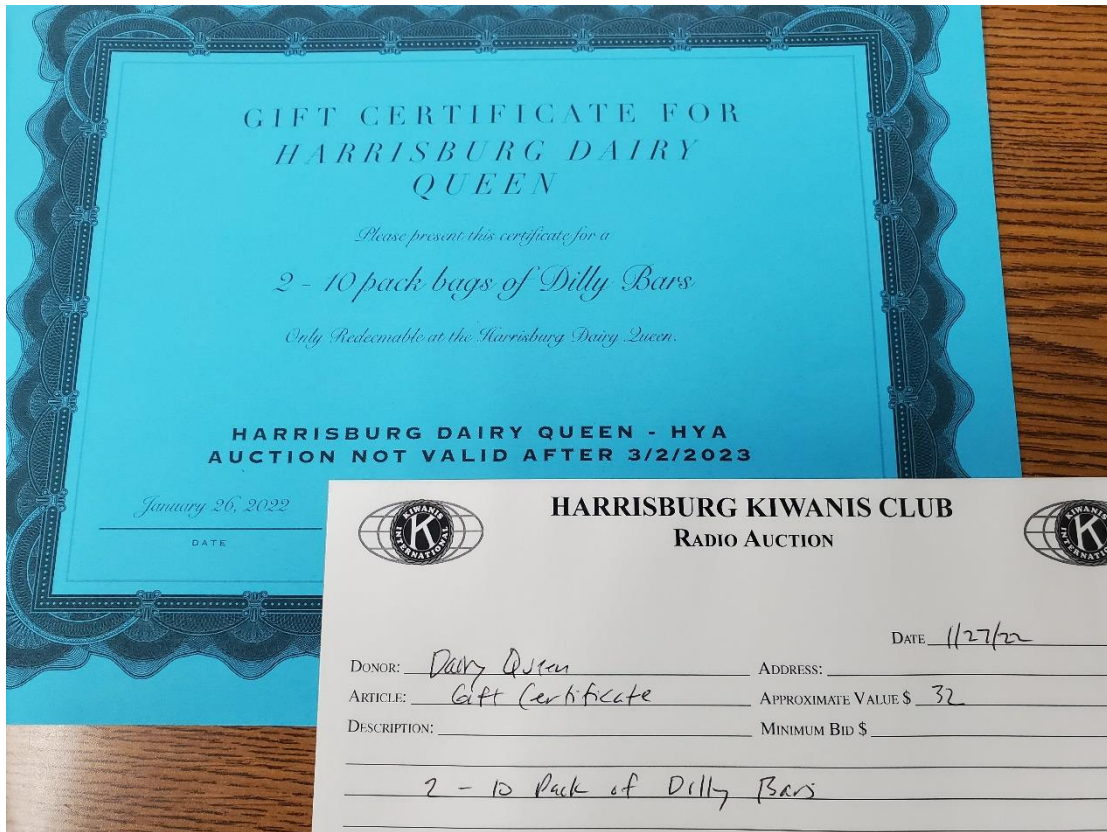 GIFT CERTIFICATE FOR
HARRISBURG DAIRY
QUEEN
Please present this certificate for a
2 - 10 pack bags of Dilly Bars
Only Redeemable at the Harrisburg Dairy Queen.
HARRISBURG DAIRY QUEEN - HYA
AUCTION NOT VALID AFTER 3/2/2023
January 26, 2022
DATE
HARRISBURG KIWANIS CLUB
RADIO AUCTION
KIWANIS
K
INTERNATIONAL
KIWANIS
K
INTERNATIONAL
DATE 1/27/22
DONOR: Dairy Queen ADDRESS:
ARTICLE: Gift Certificate APPROXIMATE VALUE $ 32
DESCRIPTION: MINIMUM BID $
2 - 10 Pack of Dilly Bars